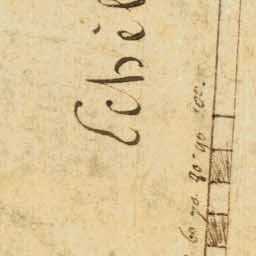 Echel
60 70. 80. 90 100.